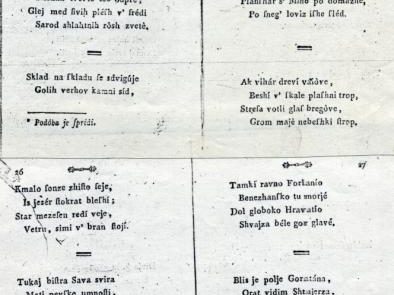 Glej med ſivih plézh v' ſrédi
Sarod shlahtnih rósh zvetè.
Sklad na ſkladu ſe sdvigúje
Golih verhov kamni síd,
* Podóba je ſprédi.
Po ſneg' loviz iſhe ſléd.
Ak vihár dreví
Beshí v' ſkale plaſhni trop,
Streſa votli glaſ bregóve,
Grom majè nebeſhki ſtrop,
26
Kmalo ſonze zhiſto ſeje,
Is jezér ſtokrat bleſhí;
Star mezeſen redí veje,
Vetru, simi v' bran ſtojí.
Tukaj biſtra Sava svira
27
Tamkí ravno Forlanío
Benezhanſko tu morjé
Dol globoko Hravatío
Shvajza béle gor glavé.
Blis je polje Goratána,
Orat vidim Shtajerza,